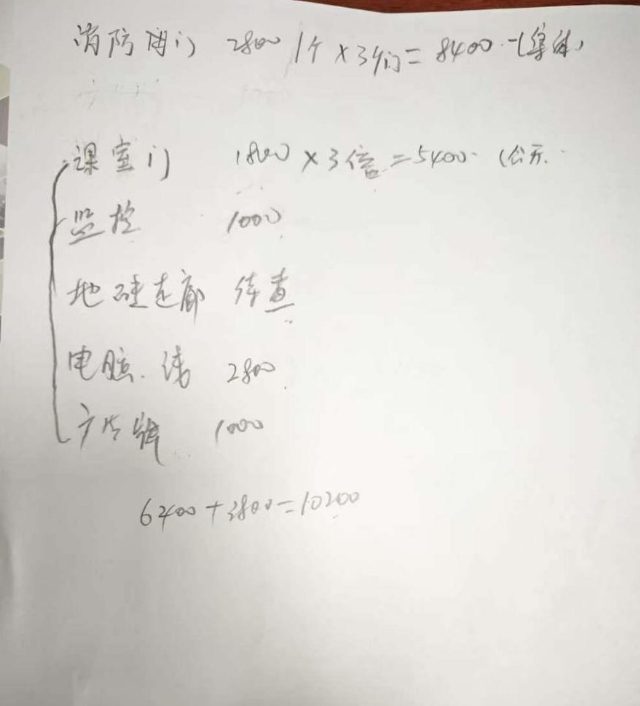 消防闸门 2800 1个×3个门=8400
课室门 1800×3倍=5400 (公开
监控 1000
地砖走廊 待查
电脑.线 2800
广告牌 1000
6400+3800=10200